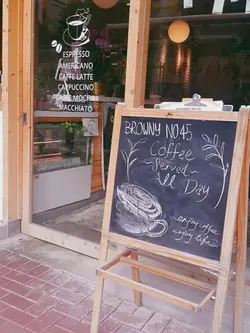 ESPRESSO
AMERICANO
CAFFE LATTE
CAPPUCCINO
CAFFE MOCHA
MACCHIATO
BROWNY NO.45
Coffee
~Served~
All Day
enjoy coffee
enjoy life